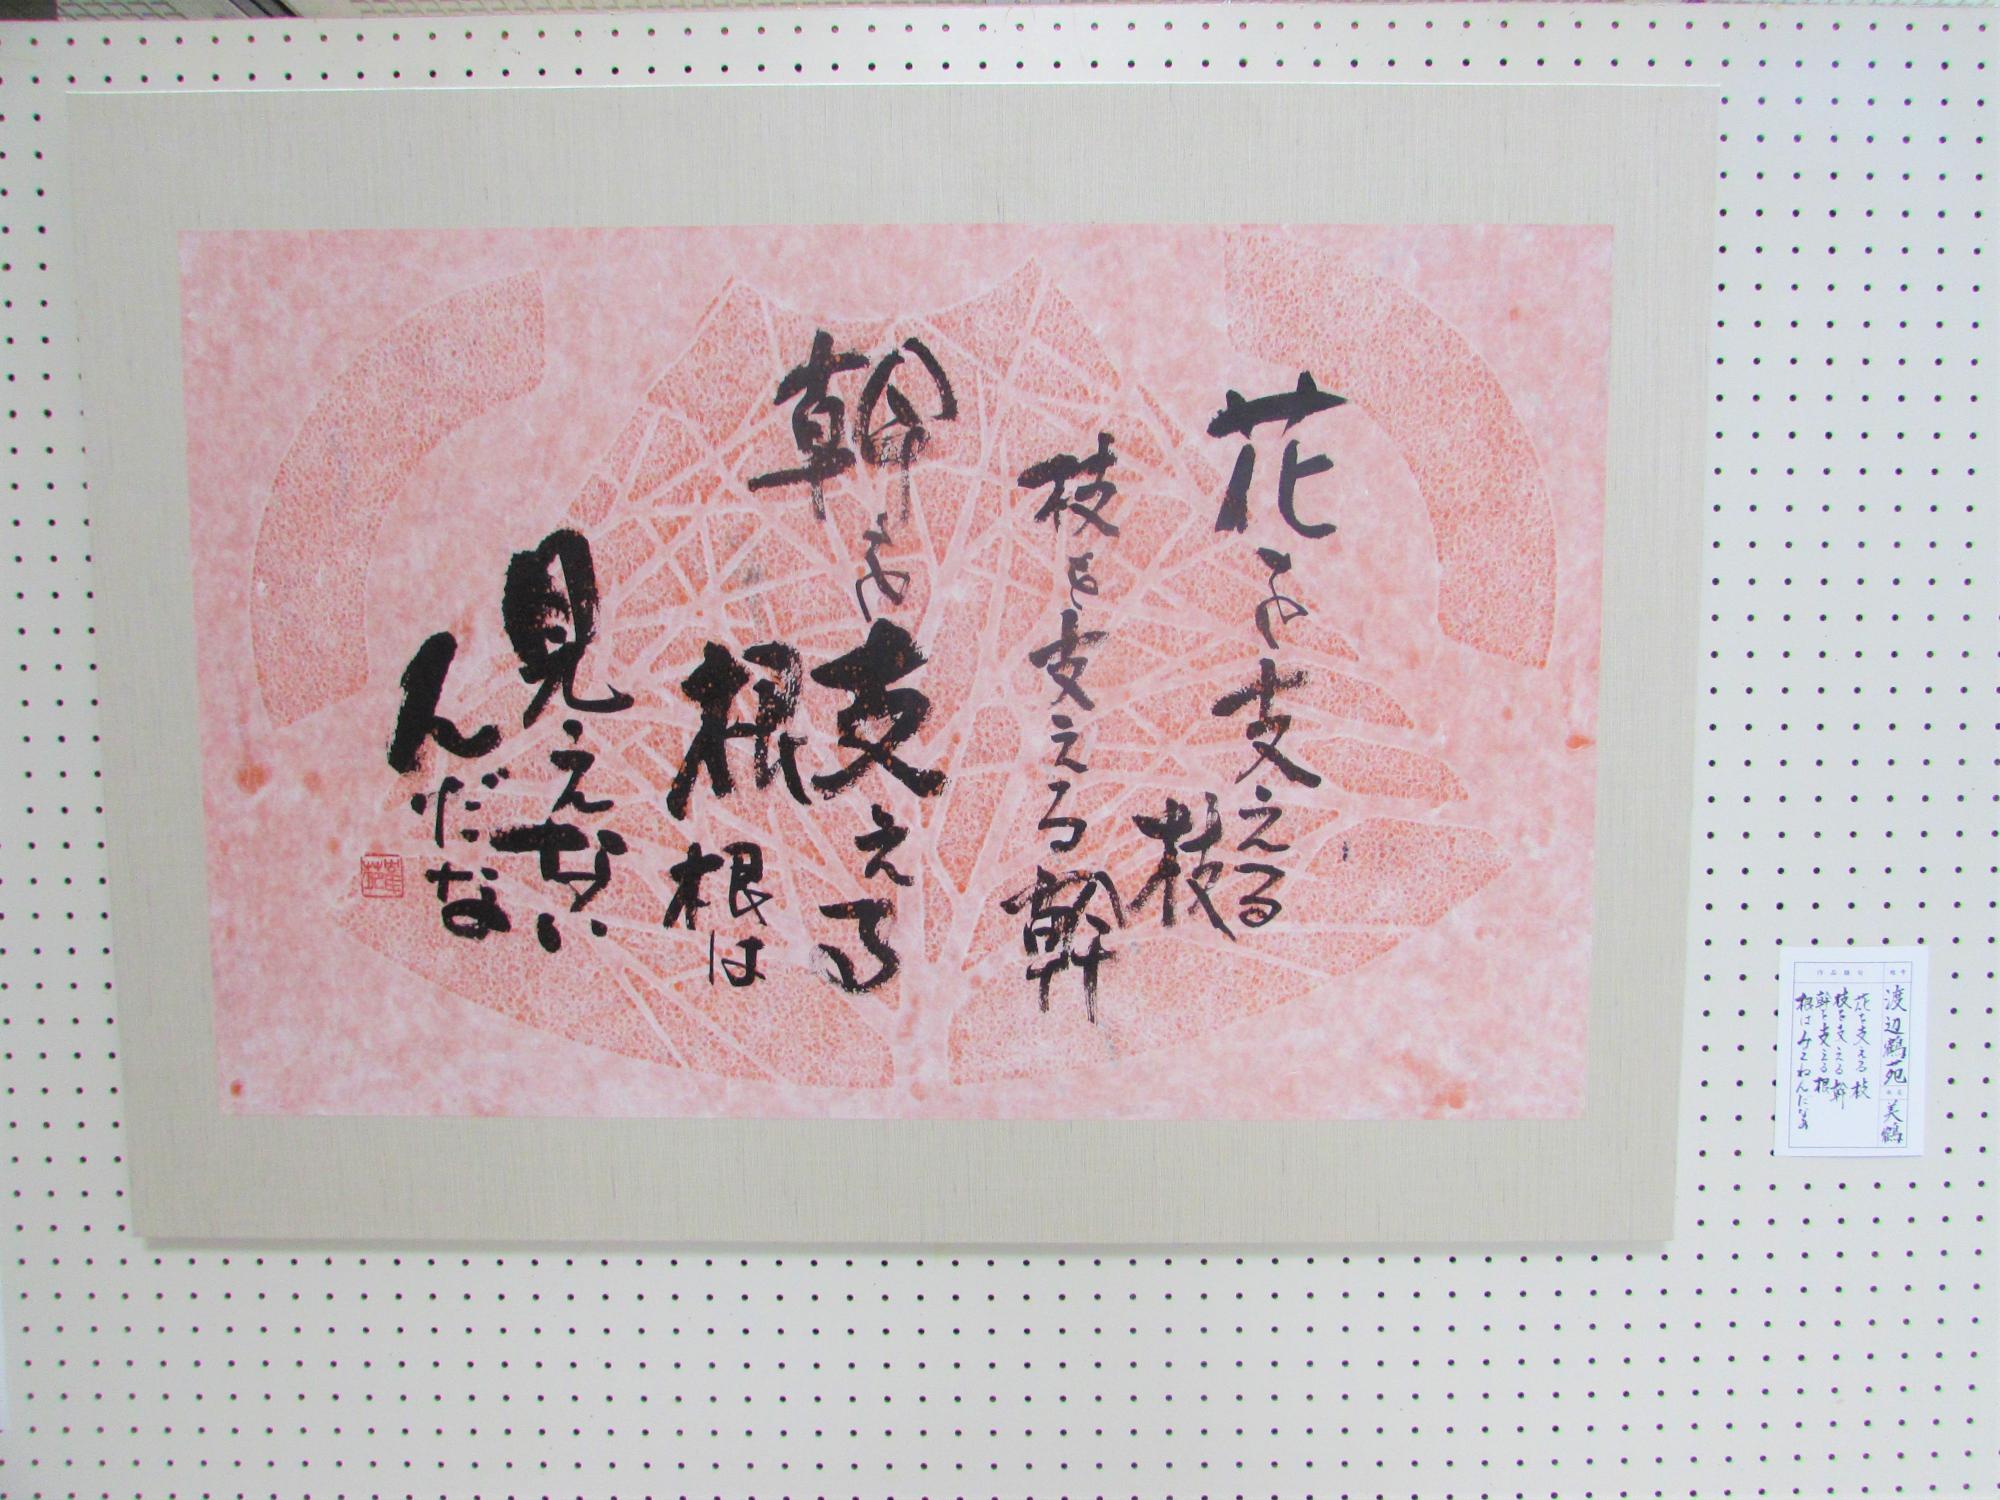 花を支える
枝
枝を支える幹
幹を支える
根
根は
見えない
んだな
作品題名
渡辺鶴苑
美鶴
花を支える枝
枝を支える幹
幹を支える根
根はみえねんだなあ